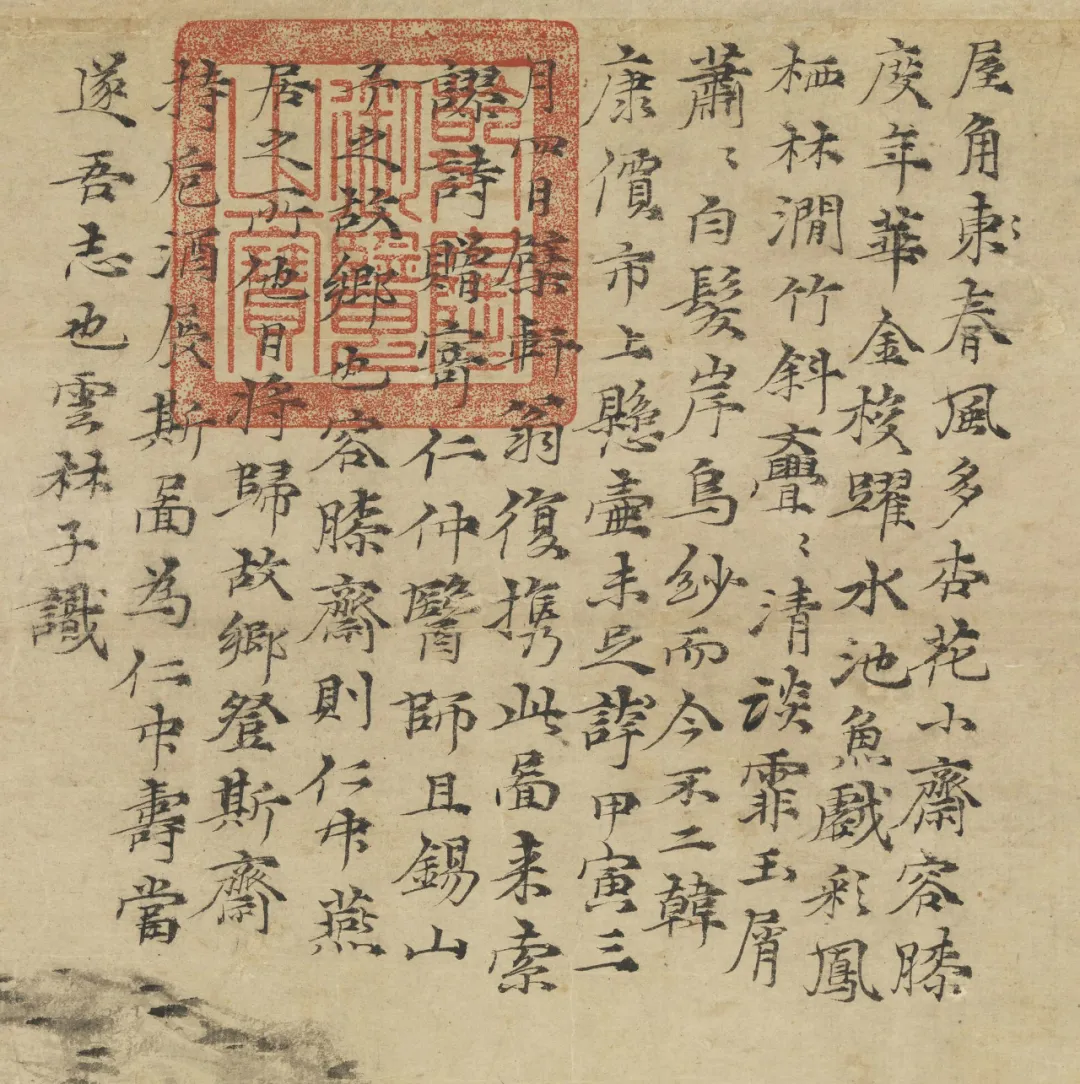 屋角東春風多杏花小齋容膝
度年華金梭躍水池魚戲彩鳳
栖林澗竹斜亹〻清談霏玉屑
蕭〻白髮岸烏紗而今不二韓
康價市上懸壺未足誇甲寅三
月四日檗軒翁復携此圖来索
謬詩贈寄仁仲醫師且錫山
予之故鄉也容膝齋則仁中燕
居之所他日將歸故鄉登斯齋
持卮酒展斯圖為仁中壽當
遂吾志也雲林子識
乾隆御覽之寶